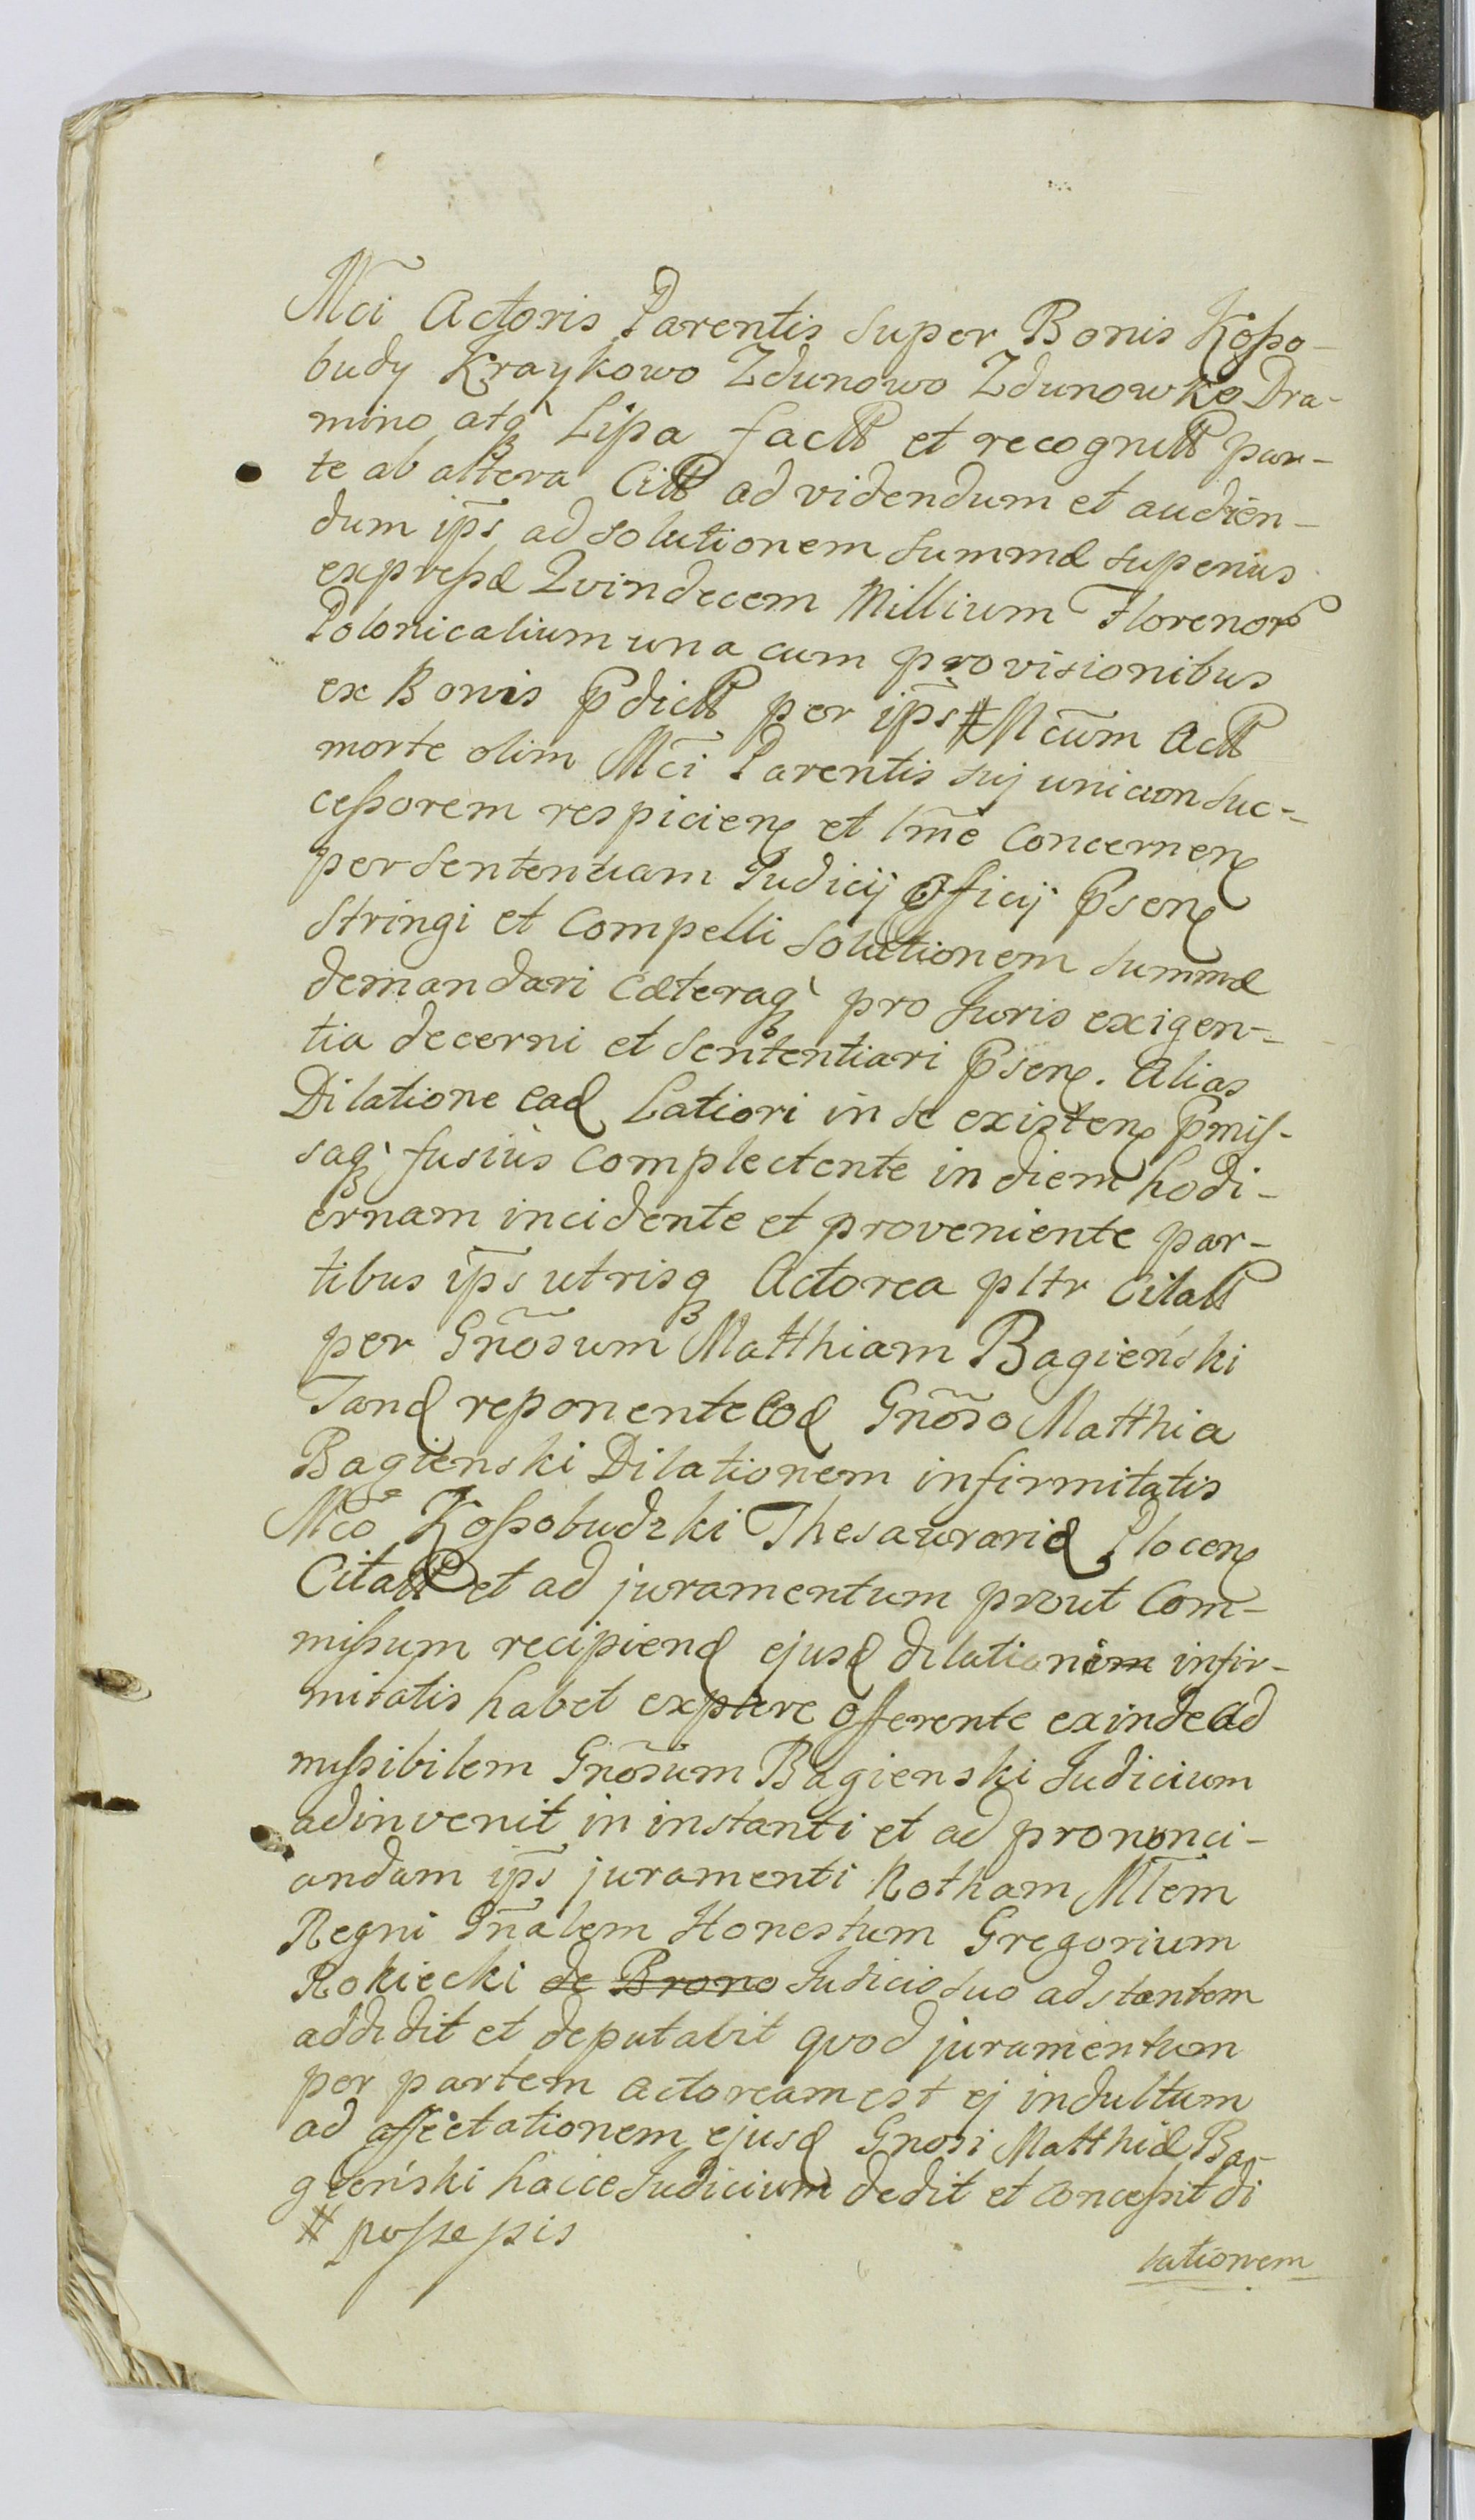 Mci Actoris Parentis super Bonis Koßo-
budy Kraykowo Zdunowo Zdunowko Dra-
mino atq̀ Lipa factt et recognitt par-
te ab altera Citt ad videndum et audien-
dum ip̄s ad solutionem summæ superius
expreßæ Qvindecem Millium Florenor
Polonicalium una cum provisionibus
ex Bonis p̄dictt per ip̄s # Mcūm Actt
morte olim Mc̄i Parentis suj unicum suc-
ceßorem respicien et lm̄e concernen
per sententiam Judicij Officij p̄sen
stringi et compelli solutionem summæ
demandari cæteraq̀ pro Juris exigen-
tia decerni et sententiari p̄sen. Alias
Dilatione ead Latiori in se existen p̄miſ-
saq̀ fusius complectente in diem hodi-
ernam incidente et proveniente par-
tibus ip̄s utrisq Actorea pltr Citatt
per Gnōsum Matthiam Bagieński
Tand reponente eod Gnōso Matthia
Bagienski Dilationem infirmitatis
Mcō Koßobudzki Thesaurarid Plocen
Citatt et ad juramentum prout Com-
mißum recipiend ejusd dilationem infir-
mitatis habet explere offerente exinde ad
mißibilem Gnōsum Bagienski Judicium
adinvenit in instanti et ad pronunci-
andam ip̄s juramenti Rotham Mlēm
Regni Gn̄alem Honestum Gregorium
Rokiecki de Brono Judicio suo adstantem
addidit et deputavit qvod juramentum
per partem actoream est ej indultum
ad affectationem ejusd Gnosi Matthiæ Ba-
gieński hocce Judicium dedit et conceßit di
# poßeßis
lationem